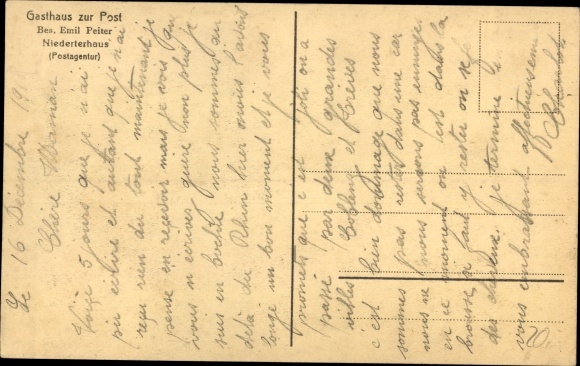 Gasthaus zur Post
Bes. Emil Peiter
Niederterhaus
(Postagentur)
Le 16 Décembre 191
Chère Maman
Voici 5 jours que je n'ai
pu écrire et autant que je n'ai
reçu rien du tout maintenant je
pense en recevoir mais je vois que
vous n'écrivez guère non plus je
suis en bochie nous sommes au
delà du Rhin hier nous l'avons
longé un bon moment et je vous
promets que c'est joli on a
passé par deux grandes
villes Coblenz et Trèves
c'est bien dommage que nous
sommes pas restés dans une car
nous ne nous serions pas ennuyer
en ce moment on est dans la
brousse il faut y rester on se
des cheveux. je termine
vous embrassant affectueusement
Charlot
20.